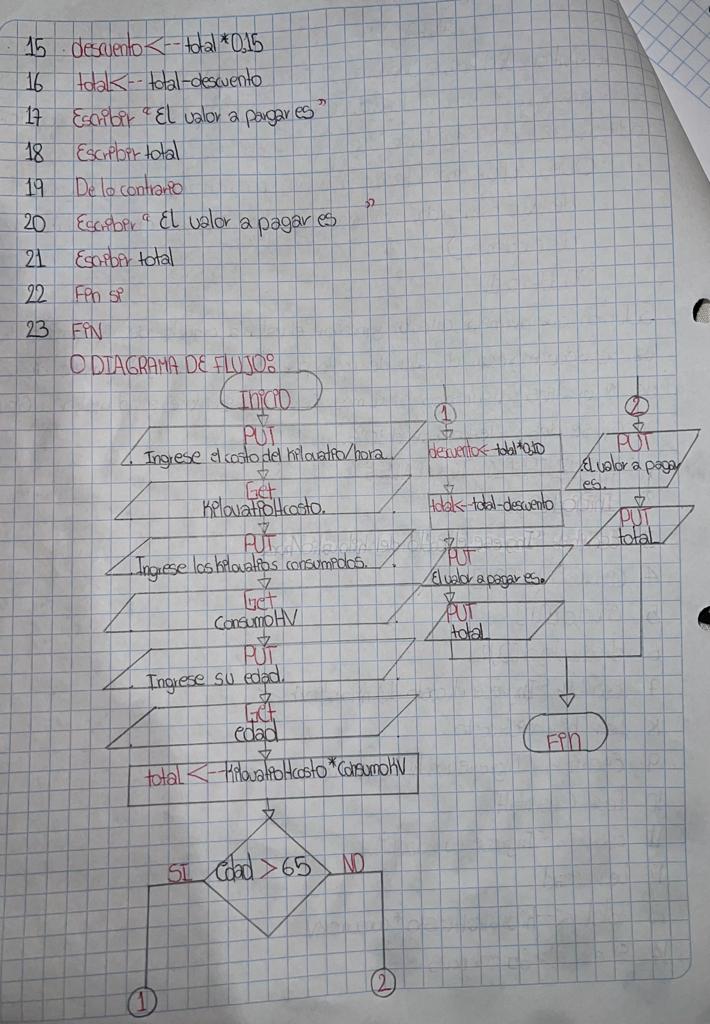 15 descuento <-- total*0.15
16 total <-- total-descuento
17 Escribir "El valor a pargar es"
18 Escribir total
19 De lo contrario
20 Escribir "El valor a pagar es"
21 Escribir total
22 Fin si
23 FIN
O DIAGRAMA DE FLUJO:
INICIO
PUT
Ingrese el costo del kilovatio/hora
Get
KilovatioHcosto.
PUT
Ingrese los kilovatios consumidos.
Get
ConsumoHV
PUT
Ingrese su edad.
Get
edad
total <-- KilovatioHcosto*ConsumoHV
Edad > 65
SI
NO
1
2
1
descuento <- total*0.10
total <- total-descuento
PUT
El valor a pagar es.
PUT
total
2
PUT
El valor a pagar
es.
PUT
total
Fin